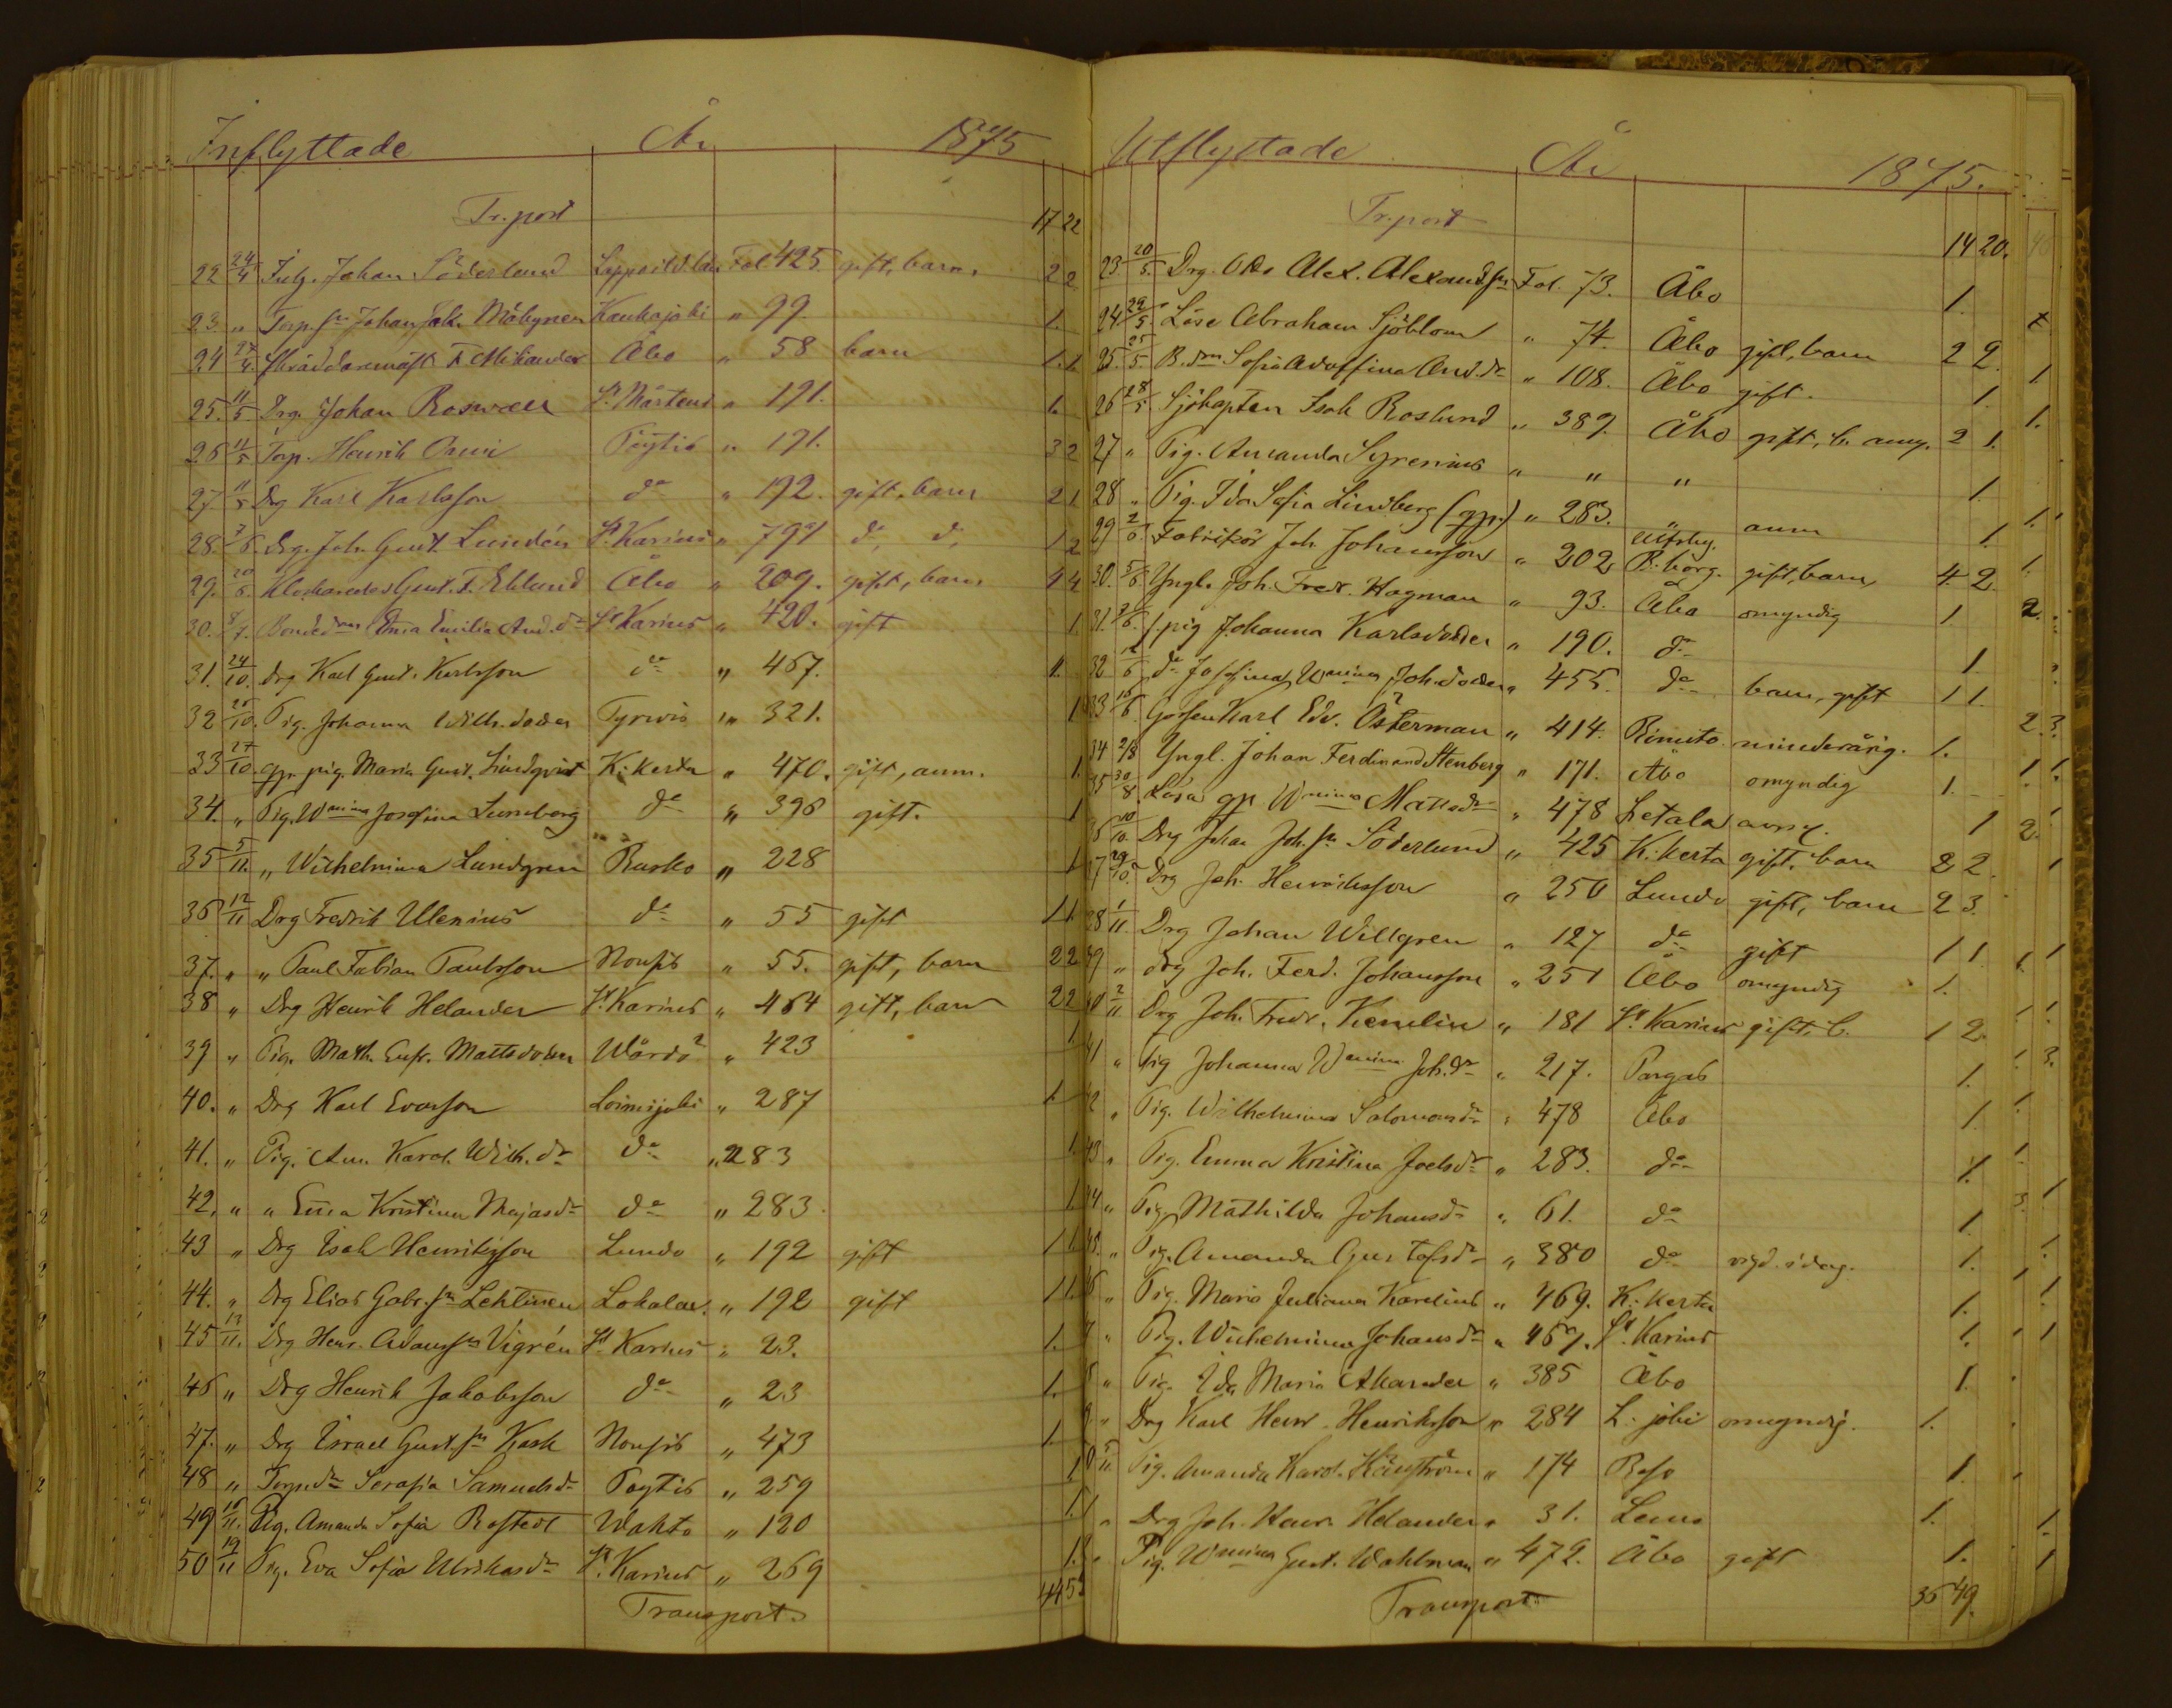 Inflyttade År 1875
Tr.port 17 22
22 24/4 Johan Söderlund Fol 425 gift, barn 2 2
23. " Torp.sn Johan Jak. Mäkynen Kaukajoki " 99 1.
24 27/4. Skräddaremäst. F. Mikander Åbo " 58 barn 1. 1.
25. 11/5. Drg. Johan Roswall St Mårtens " 191. 1.
26 11/5 Torp. Henrik Pöytis " 191. 3 2
27. 11/5 Drg Karl Karlsson do " 192. gift, barn 2 1
28. 7/6. Drg. Joh. Gust. Lundén St Karins " 791 do, do, 1 2
29. 20/6. Gust. F. Eklund Åbo " 209. gift, barn 4 4
30. 8/7. Emilia And.dr St Karins " 420. gift 1.
31. 24/10. Drg Karl Gust. Karlsson do " 467. 1.
32 25/10. Pig. Johanna Wilh.dotter Tyrvis " 321. 1
33 27/10. Gpr pig. Maria Gust. Lindqvist K:kerta " 470. gift, anm. 1.
34. " Pig. Wmina Josefina Lunborg do " 396 gift. 1
35 5/11. " Wilhelmina Lundgren Rusko " 228 1
36 12/11 Drg Fredrik Ulenius do " 55 gift 1. 1.
37. " " Paul Fabian Paulsson Nousis " 55. gift, barn 2 2
38 " Drg Henrik Helander St Karins " 464 gift, barn 2 2
39 " Pig. Math. Eufr. Mattsdotter Wårdö " 423 1
40. " Drg Karl Evasson Loimijoki " 287 1.
41. " Pig. Am. Karol. Wilh.dr do " 283 1.
42. " " Emma Kristina Majasdr do " 283. 1.
43 " Drg Isak Henriksson Lundo " 192 gift 1 1
44. " Drg Elias Gabr.sn Lehtinen Lokalax. " 192 gift 1 1
45 13/11. Drg Henr. Adamssn Vigrén St Karins " 23. 1.
46 " Drg Henrik Jakobsson do " 23 1.
47. " Drg Israel Gust.sn Kask Nousis " 473 1.
48 " Torpdr Serafia Samuelsdr Poytis " 259 1
49 16/11. Pig. Amanda Sofia Rostedt Wahto " 120 1.
50 19/11 Pig. Eva Sofia Ulrikasdr St. Karins " 269 1.
Transport 44 53
Utflyttade År 1875.
Tr.port 14 20.
23 20/5. Drg. Otto Alex. Alexandssn Fol. 73. Åbo 1.
24. 22/5. Löse Abraham Sjöblom " 74. Åbo gift, barn 2 2.
25. 25/5. B.dm Sofia Adolfina And.dr " 108. Åbo gift. 1.
26 28/5 Sjökapten Isak Roslund " 389. Åbo gift, b. anm. 2 1.
27 " Pig. Amanda Syrenius " " " 1.
28 " Pig. Ida Sofia Lindberg (gpr) " 283. " anm 1.
29 2/6. Fabrikör Joh. Johansson " 202 Ulfsby. B:borg. gift, barn 4 2.
30. 5/6 Yngl. Joh. Fredr. Hagman " 93. Åbo omyndig 1
31. 9/6. f.pig Johanna Karlsdotter " 190. do 1.
32 /6 do Josefina Wmina Joh.dotter " 455. do barn, gift 1 1.
33 15/6. Gossen Karl Edv. Österman " 414. Rimito minderårig. 1.
34 2/8 Yngl. Johan Ferdinand Stenberg " 171. Åbo omyndig 1.
35 30/8. Lösa gp Wmina Mattsdr " 478 Letala anm. 1
36 10/10. Drg Johan Joh.sn Söderlund " 425 K:kerta gift, barn 2 2.
37 29/10. Drg Joh. Henriksson " 250 Lundo gift, barn 2 3.
38 1/11. Drg Johan Willgren " 127 do gift 1 1
39 " Drg Joh. Ferd. Johansson " 251 Åbo omyndig 1.
40 2/11 Drg Joh. Fredr. Kemlin " 181 St. Karins gift, b. 1 2.
41 " Pig Johanna Wmina Joh.dr " 217. Pargas 1.
42 " Pig. Wilhelmina Salomonsdr " 478 Åbo 1.
43 " Pig. Emma Kristina Joelsdr " 283. do 1.
44 " Pig. Mathilda Johansdr " 61. do 1.
45. " Pig. Amanda Gustafsdr " 380 do vigd i dag. 1.
46 " Pig. Maria Juliana Karelius " 469. K:kerta 1.
7 " Pig. Wilhelmina Johansdr " 467. St. Karins 1.
8 " Pig. Ida Maria Akander " 385 Åbo 1.
9 " Drg Karl Henr. Henriksson " 284 L:joki omyndig. 1.
0 5/11 Pig. Amanda Karol. " 174 Reso 1.
1 " Drg Joh. Henr. Helander " 31. Lemo 1.
2 " Pig. Wmina Gust. Wahlman " 472. Åbo gift 1.
Transport 36 49.